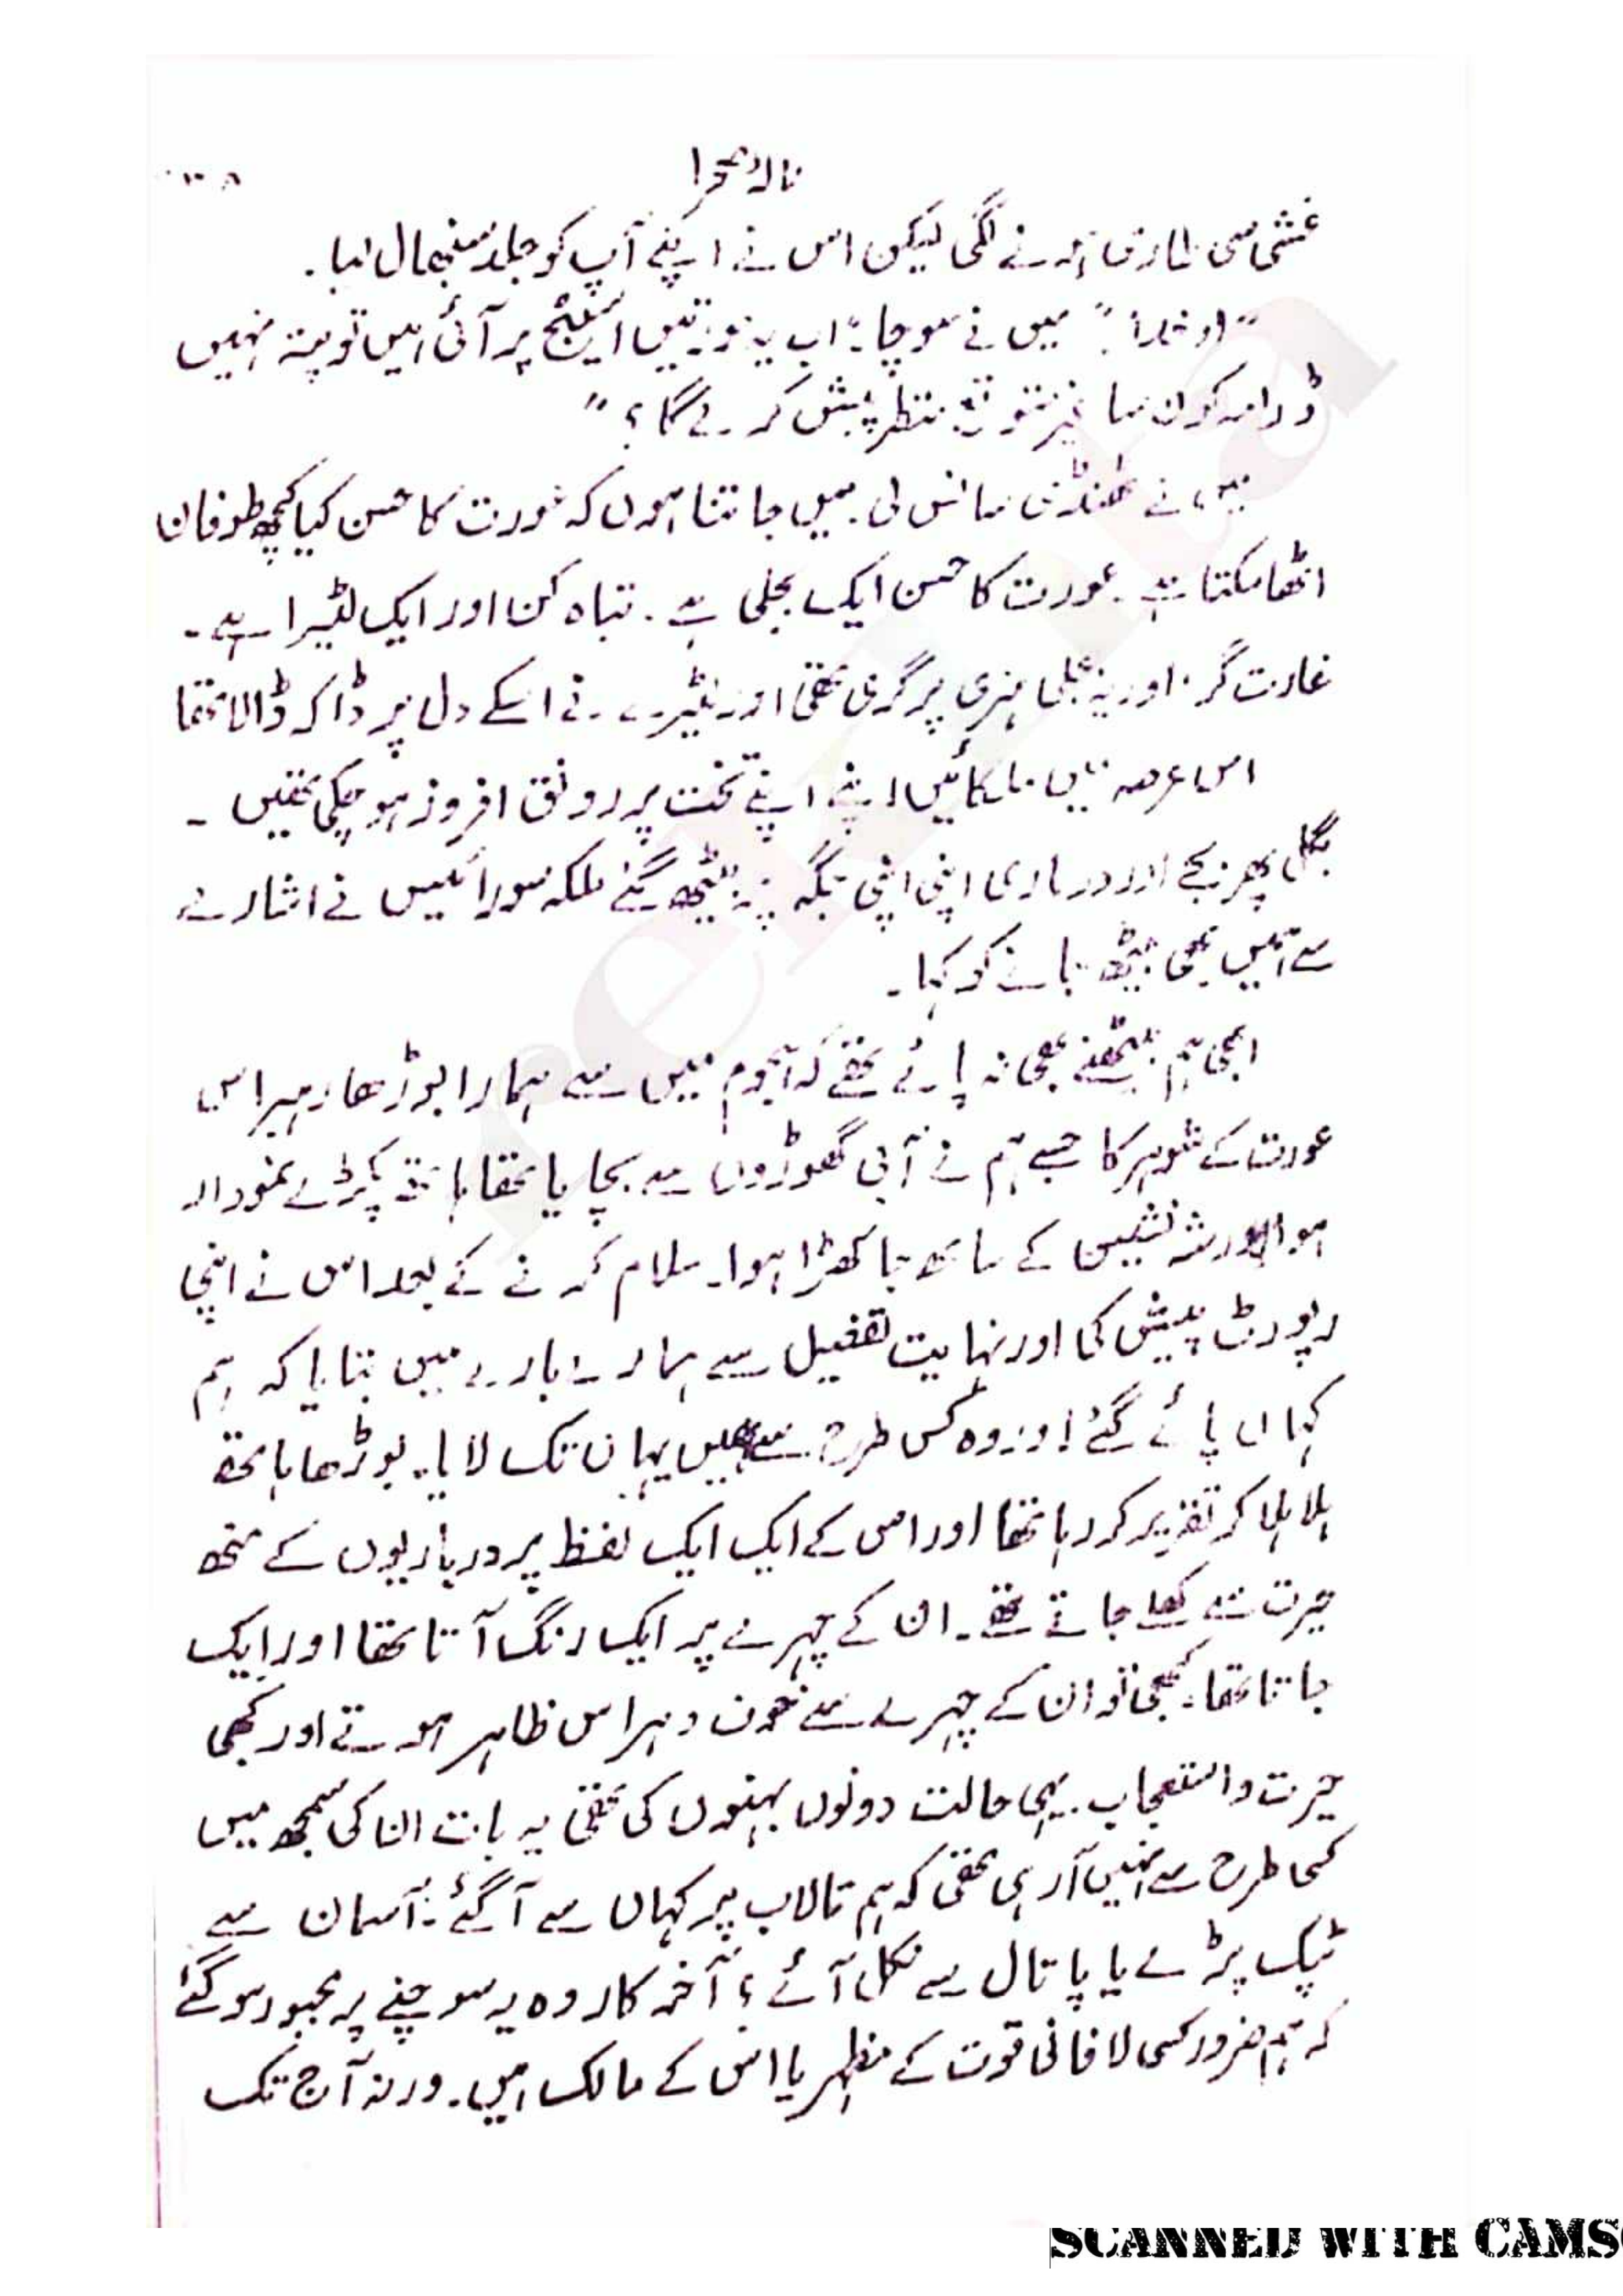 نالۂ صحرا
غشی سی طاری ہونے لگی لیکن اس نے اپنے آپ کو جلد سنبھال لیا۔
"او خدا!" میں نے سوچا "اب یہ عورتیں اسٹیج پر آئی ہیں تو پتہ نہیں
ڈرامہ کون سا غیر متوقع منظر پیش کرے گا؟"
میں نے ٹھنڈی سانس لی۔ میں جانتا ہوں کہ عورت کا حسن کیا کچھ طوفان
اٹھا سکتا ہے۔ عورت کا حسن ایک بجلی ہے۔ تباہ کن اور ایک لٹیرا ہے۔
غارت گر۔ اور یہ بجلی ہنری پر گری تھی اور لٹیرے نے اسکے دل پر ڈاکہ ڈالا تھا
اس عرصہ میں ملکائیں اپنے اپنے تخت پر رونق افروز ہو چکی تھیں۔
بگل پھر بجے اور درباری اپنی اپنی جگہ پر بیٹھ گئے ملکہ سورائیس نے اشارے
سے ہمیں بھی بیٹھ جانے کو کہا۔
ابھی ہم بیٹھنے بھی نہ پائے تھے کہ ہجوم میں سے ہمارا بوڑھا رہبر اس
عورت کے شوہر کا جسے ہم نے آبی گھوڑوں سے بچایا تھا ہاتھ پکڑے نمودار
ہوا اور شہ نشین کے ساتھ جا کھڑا ہوا۔ سلام کرنے کے بعد اس نے اپنی
رپورٹ پیش کی اور نہایت تفصیل سے ہمارے بارے میں بتایا کہ ہم
کہاں پائے گئے اور وہ کس طرح سے ہمیں یہاں تک لایا۔ بوڑھا ہاتھ
ہلا ہلا کر تقریر کر رہا تھا اور اس کے ایک ایک لفظ پر درباریوں کے منھ
حیرت سے کھلے جاتے تھے۔ ان کے چہرے پر ایک رنگ آتا تھا اور ایک
جاتا تھا۔ کبھی تو ان کے چہرے سے خوف و ہراس ظاہر ہوتے اور کبھی
حیرت و استعجاب۔ یہی حالت دونوں بہنوں کی تھی یہ بات ان کی سمجھ میں
کسی طرح سے نہیں آ رہی تھی کہ ہم تالاب پر کہاں سے آ گئے؟ آسمان سے
ٹپک پڑے یا پاتال سے نکل آئے؟ آخر کار وہ یہ سوچنے پر مجبور ہو گئے
کہ ہم ضرور کسی لافانی قوت کے مظہر یا اس کے مالک ہیں۔ ورنہ آج تک
rekhta
SCANNED WITH CAMS